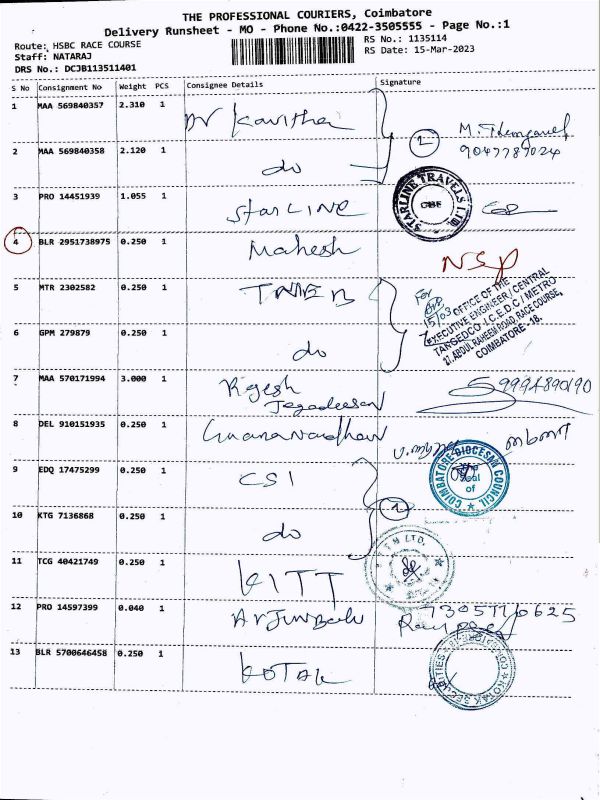 THE PROFESSIONAL COURIERS, Coimbatore
Delivery Runsheet - MO - Phone No.:0422-3505555 - Page No.:1
Route: HSBC RACE COURSE
RS No.: 1135114
Staff: NATARAJ
RS Date: 15-Mar-2023
DRS No.: DCJB113511401
S No Consignment No Weight PCS Consignee Details Signature
1 MAA 569840357 2.310 1 Dr Kavitha
2 9047789024
2 MAA 569840358 2.120 1 do
3 PRO 14451939 1.055 1 StarLINE
STARLINE TRAVELS LTD. CBE
4 BLR 2951738975 0.250 1 Mahesh NSP
5 MTR 2302582 0.250 1 TNEB
For
15/03 OFFICE OF THE
EXECUTIVE ENGINEER/CENTRAL
TANGEDCO I.C.E.D.C / METRO
27, ABDUL RAHEEM ROAD, RACE COURSE,
COIMBATORE - 18.
6 GPM 279879 0.250 1 do
7 MAA 570171994 3.000 1 Rigesh
Jegadeesan
9994890190
8 DEL 910151935 0.250 1
9 EDQ 17475299 0.250 1 CSI
COIMBATORE DIOCESAN COUNCIL
Seal of
10 KTG 7136868 0.250 1 do 2
11 TCG 40421749 0.250 1 KITT
12 PRO 14597399 0.040 1 Arjunbalu
13 BLR 5700646458 0.250 1 KOTAK
KOTAK SECURITIES COIMBATORE